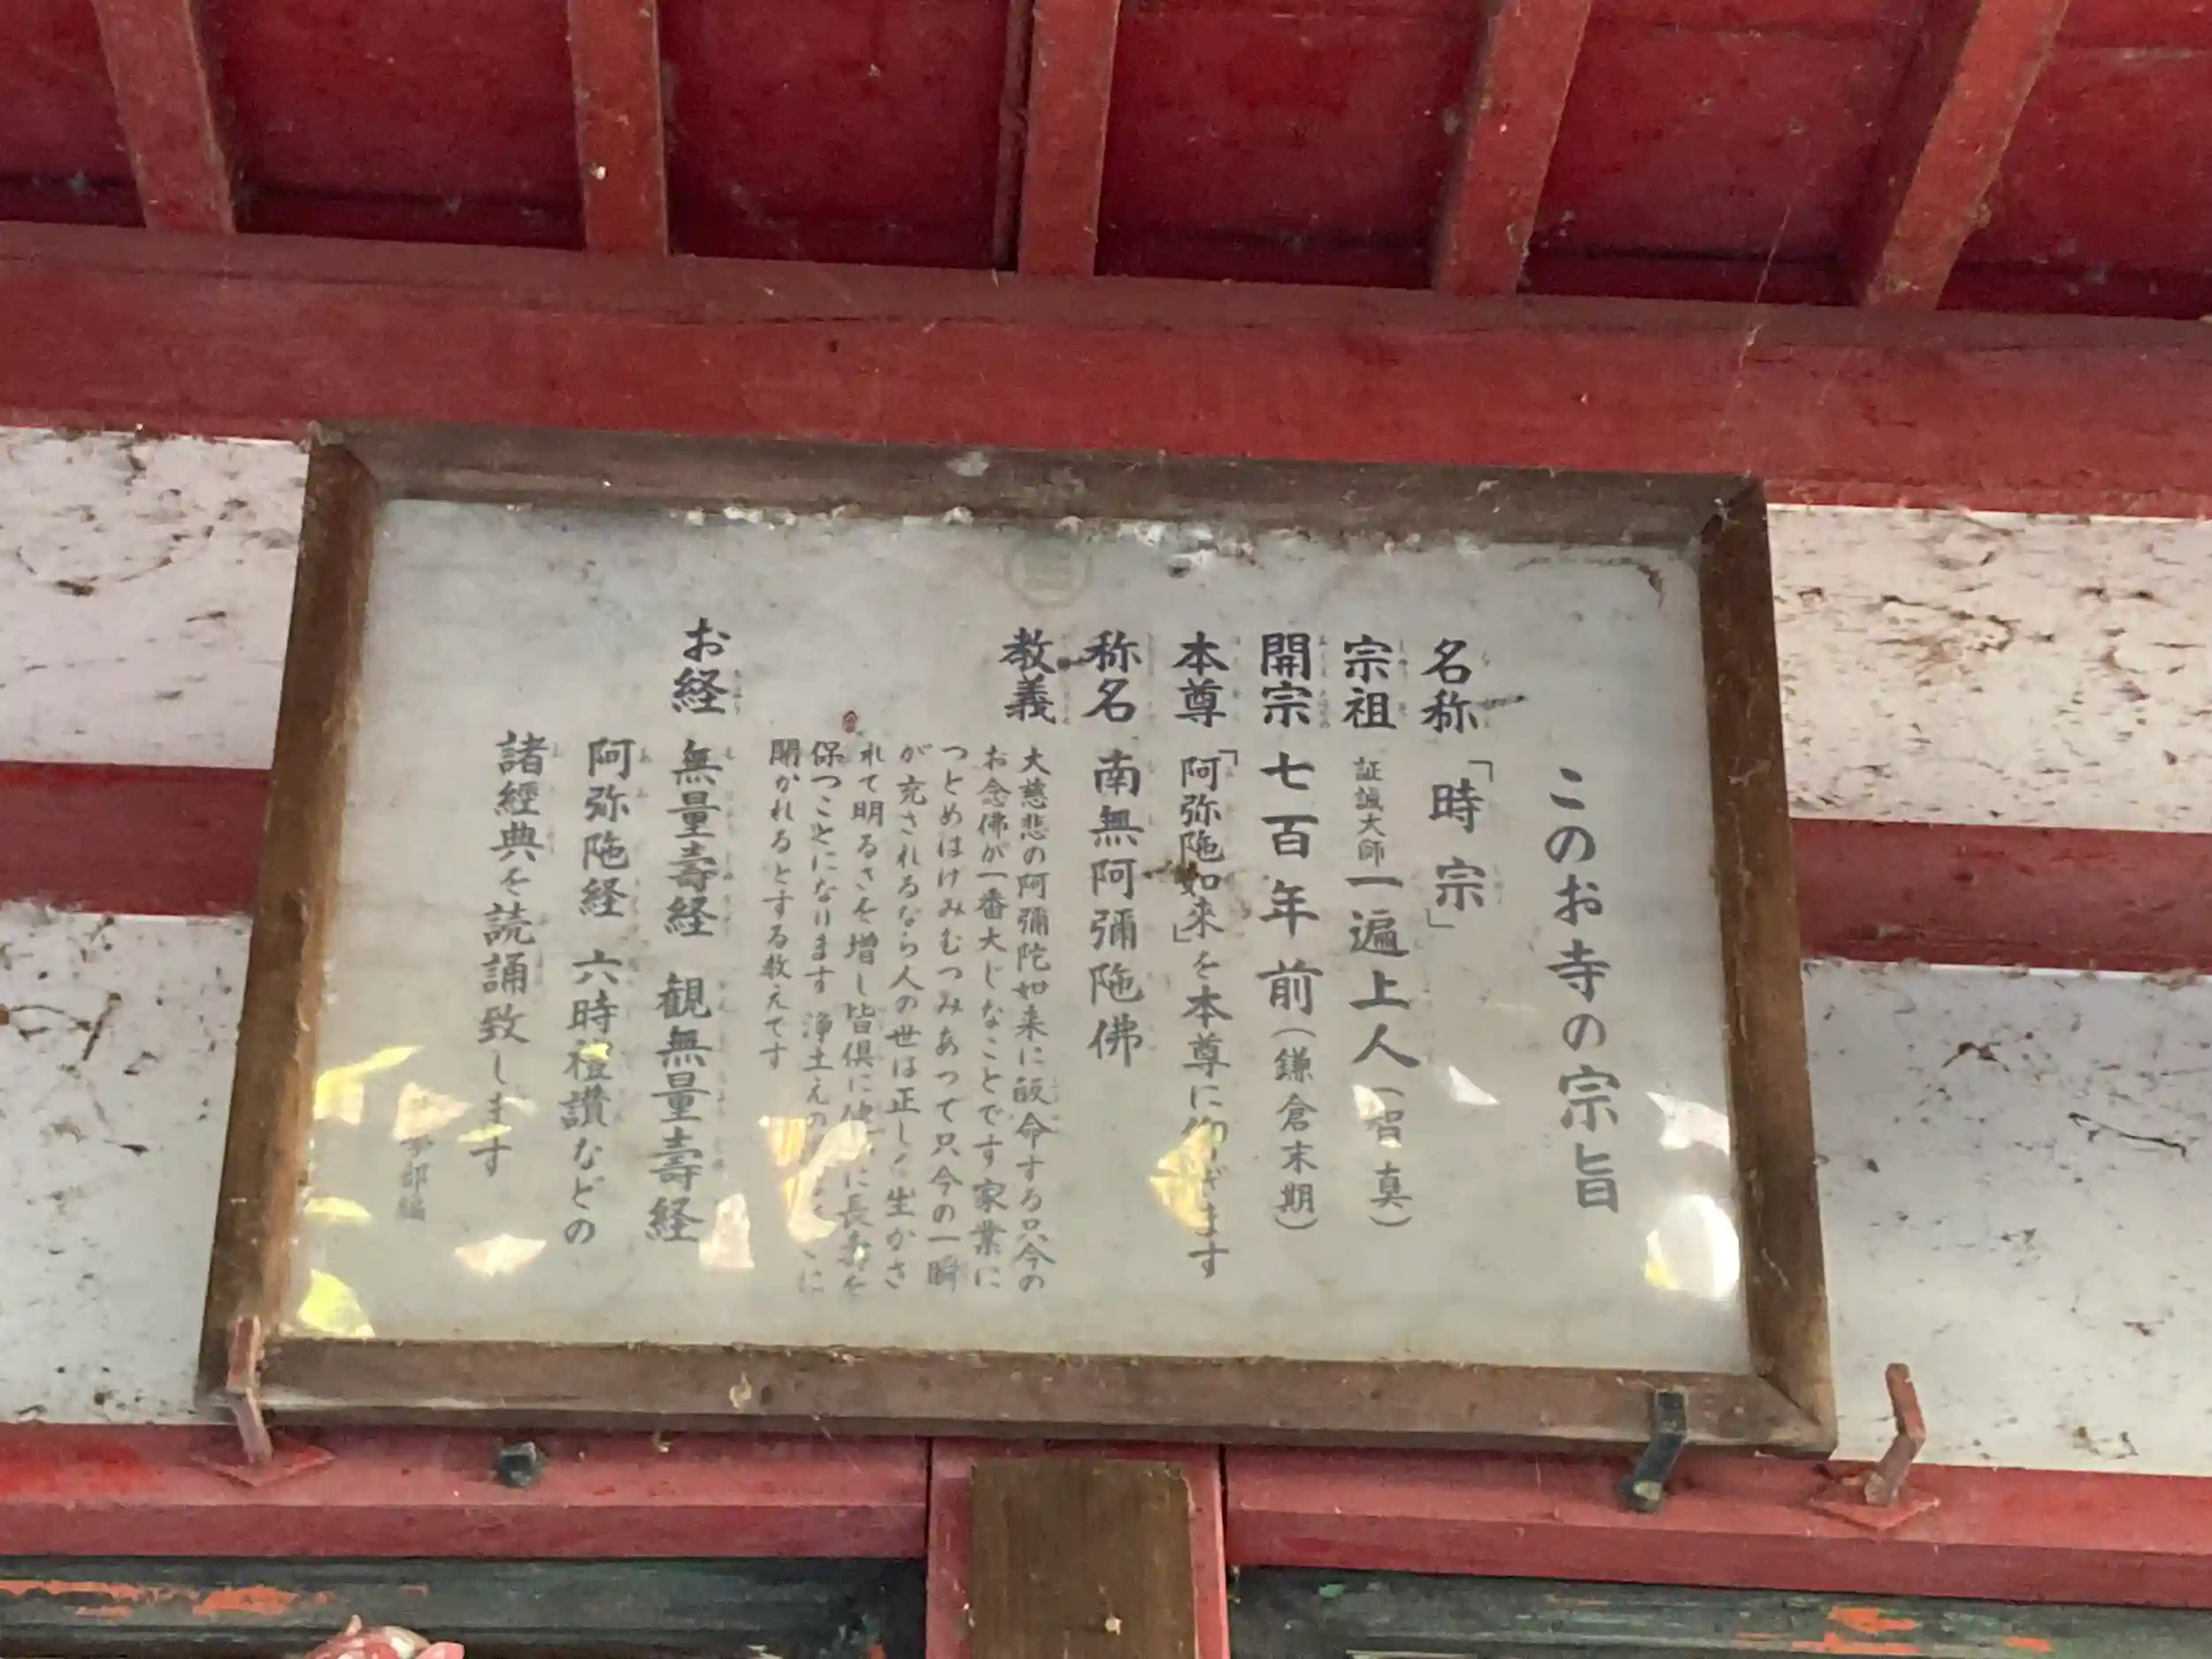 このお寺の宗旨
名称「時宗」
宗祖 証誠大師 一遍上人（智真）
開宗 七百年前（鎌倉末期）
本尊「阿弥陁如来」を本尊に仰ぎます
称名 南無阿彌陁佛
教義 大慈悲の阿彌陀如来に皈命する只今の
お念佛が一番大じなことです家業に
つとめはげみむつみあって只今の一瞬
が充されるなら人の世は正しく生かさ
れて明るさを増し皆倶に に長寿を
保つことになります 浄土えの に
開かれるとする教えです
お経 無量壽経 観無量壽経
阿弥陁経 六時禮讃などの
諸經典を読誦致します
部編